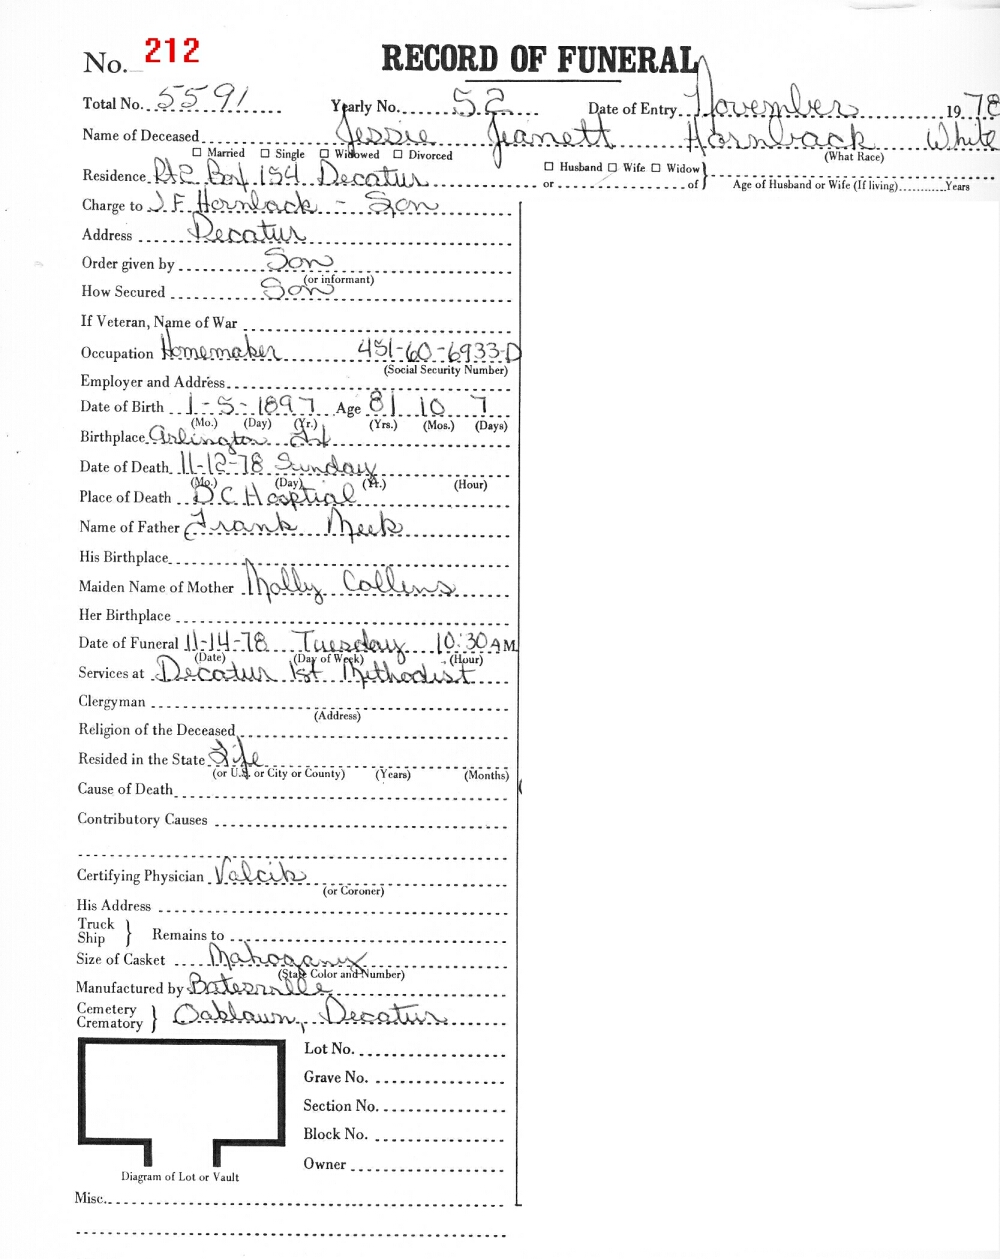 No. 212 RECORD OF FUNERAL
Total No. 5591 Yearly No. 52 Date of Entry November 1978
Name of Deceased Jessie Jeanett Hornback White
(What Race)
☐ Married ☐ Single ☐ Widowed ☐ Divorced
Residence Rt 2 Box 154 Decatur ☐ Husband ☐ Wife ☐ Widow
or of Age of Husband or Wife (If living) Years
Charge to J.F. Hornback - Son
Address Decatur
Order given by Son
(or informant)
How Secured Son
If Veteran, Name of War
Occupation Homemaker 451-60-6933-D
(Social Security Number)
Employer and Address
Date of Birth 1-5-1897 Age 81 10 7
(Mo.) (Day) (Yr.) (Yrs.) (Mos.) (Days)
Birthplace Arlington Ark
Date of Death 11-12-78 Sunday
(Mo.) (Day) (Yr.) (Hour)
Place of Death D C Hosptial
Name of Father Frank Meek
His Birthplace
Maiden Name of Mother Molly Collins
Her Birthplace
Date of Funeral 11-14-78 Tuesday 10:30 AM
(Date) (Day of Week) (Hour)
Services at Decatur 1st Methodist
Clergyman
(Address)
Religion of the Deceased
Resided in the State Life
(or U.S. or City or County) (Years) (Months)
Cause of Death
Contributory Causes
Certifying Physician Valcik
(or Coroner)
His Address
Truck
Ship } Remains to
Size of Casket Mahogany
(State Color and Number)
Manufactured by Batesville
Cemetery
Crematory } Oaklawn, Decatur
Lot No.
Grave No.
Section No.
Block No.
Owner
Diagram of Lot or Vault
Misc.